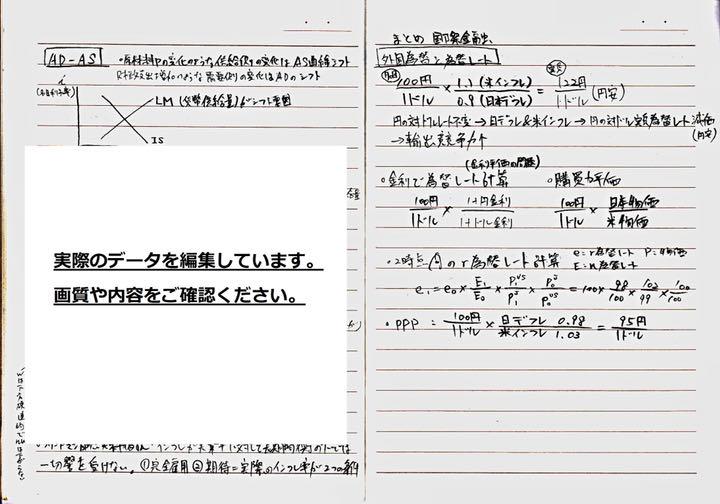 AD-AS
・原材料Pの変化のような供給側の変化はAS曲線シフト
財政支出増のような需要側の変化はADのシフト
i
(名目利子率)
LM (貨幣供給量)がシフト要因
IS
実際のデータを編集しています。
画質や内容をご確認ください。
一切響を受けない。①完全雇用②期待=実際のインフレ率が2つの条件
まとめ
外国為替と為替レート
名目
100円/1ドル × 1.1 (米インフレ)/0.9 (日本デフレ) = 実質 122円/1ドル (円安)
円の対ドルレート不変→日デフレ&米インフレ→円の対ドル実質為替レート減価(円安)
→輸出競争力↑
(金利平価の関係)
・金利で為替レート計算
・購買力平価
100円/1ドル × 1+円金利/1+ドル金利
100円/1ドル × 日本物価/米物価
・2時点間のr為替レート計算
e=r為替レート P=物価
E=n為替レート
e₁=e₀× E₁/E₀ × P₁ᵘˢ/P₁ᴶ × P₀ᴶ/P₀ᵘˢ = 100× 98/100 × 102/99 × 100/100
・PPP : 100円/1ドル × 日デフレ 0.98/米インフレ 1.03 = 95円/1ドル